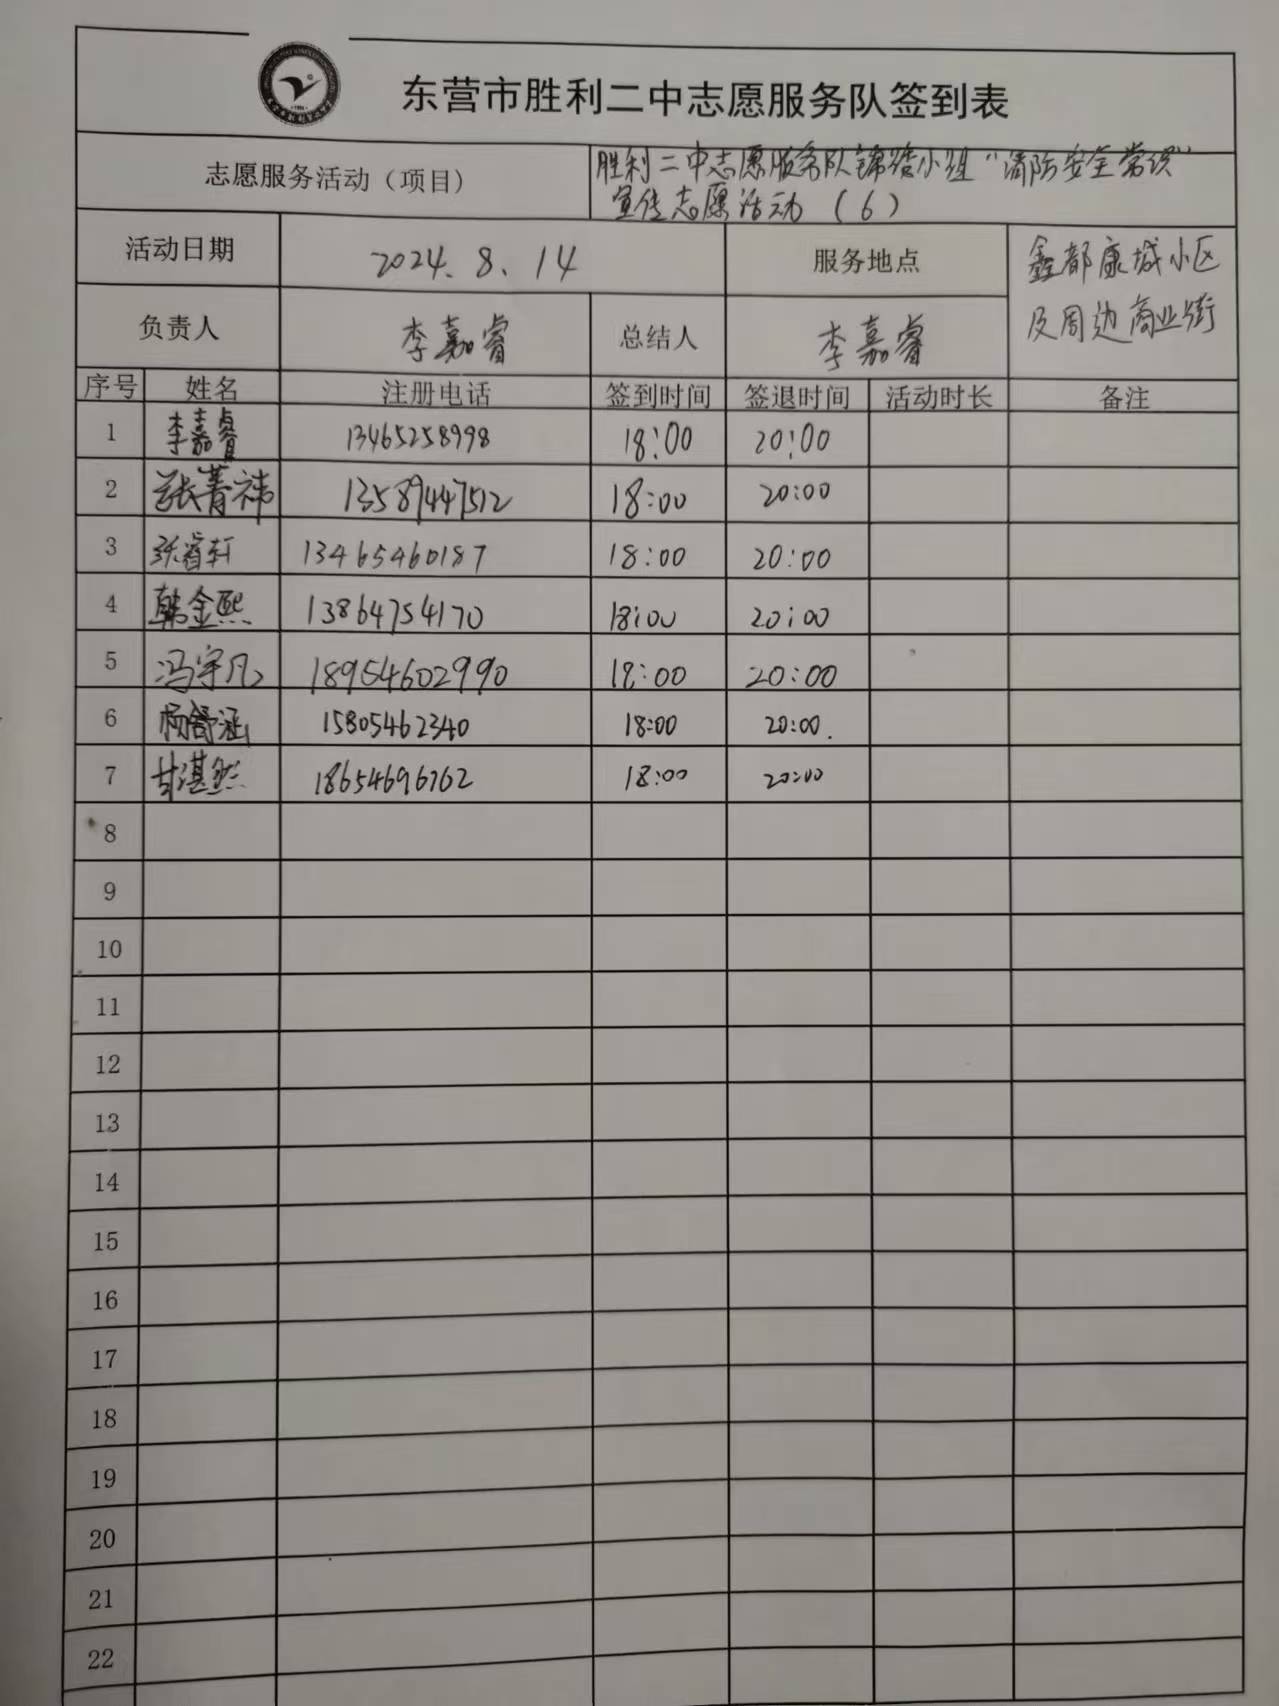 东营市胜利二中志愿服务队签到表
志愿服务活动（项目） 胜利二中志愿服务队锦 小组“消防安全常识”
宣传志愿活动（6）
活动日期 2024.8.14 服务地点 鑫都康城小区
及周边商业街
负责人 李嘉睿 总结人 李嘉睿
序号 姓名 注册电话 签到时间 签退时间 活动时长 备注
1 李嘉睿 13465258998 18:00 20:00
2 张菁祎 13589447512 18:00 20:00
3 张睿轩 13465460187 18:00 20:00
4 韩金熙 13864754170 18:00 20:00
5 冯宇凡 18954602990 18:00 20:00
6 杨舒涵 15805462340 18:00 20:00.
7 甘湛然 18654696762 18:00 20:00
8
9
10
11
12
13
14
15
16
17
18
19
20
21
22